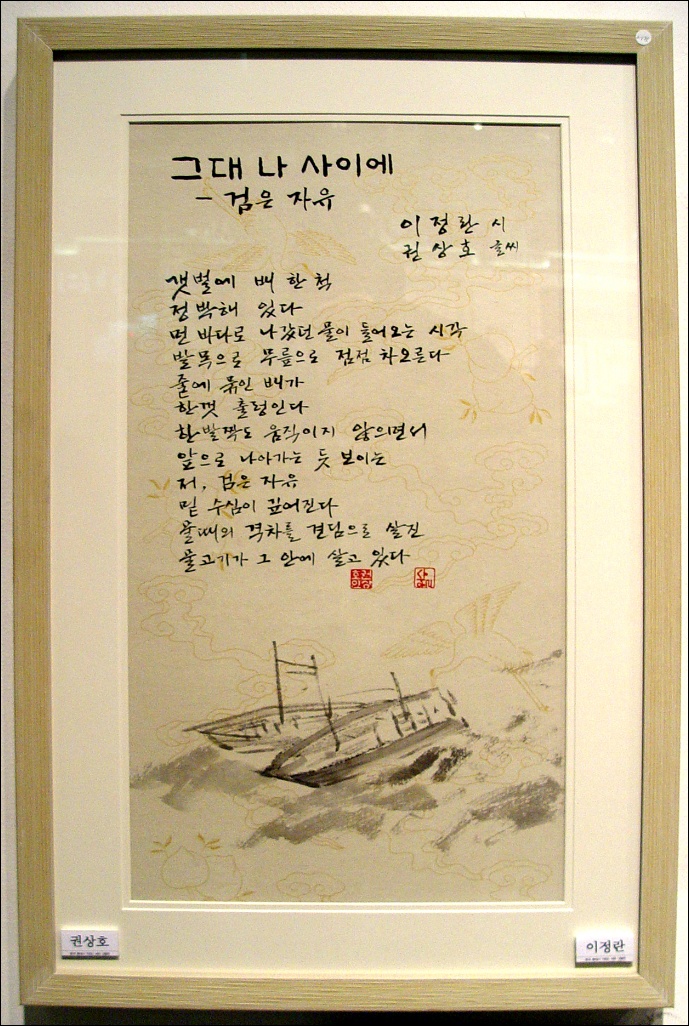 그대 나 사이에
- 검은 자유
이정란 시
권상호 글씨
갯벌에 배 한 척
정박해 있다
먼 바다로 나갔던 물이 들어오는 시각
발목으로 무릎으로 점점 차오른다
줄에 묶인 배가
한껏 출렁인다
한발짝도 움직이지 않으면서
앞으로 나아가는 듯 보이는
저, 검은 자유
밑 수심이 깊어진다
물때의 격차를 견딤으로 살진
물고기가 그 안에 살고 있다
권상호
이정란